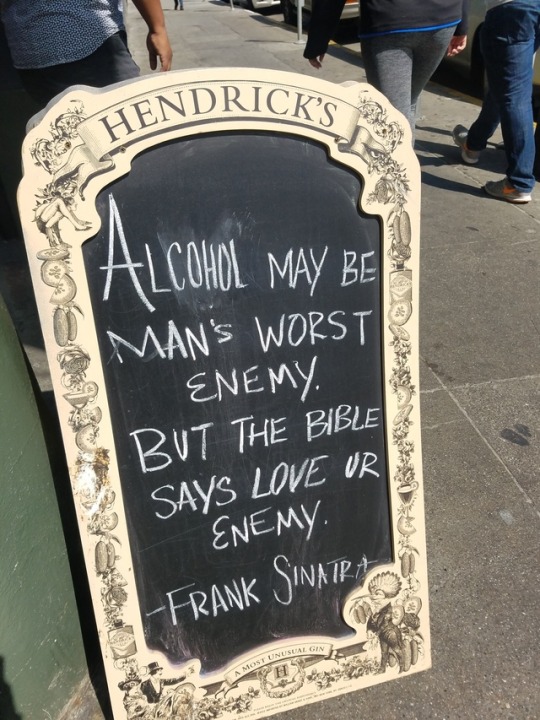 HENDRICK'S
ALCOHOL MAY BE
MAN'S WORST
ENEMY.
BUT THE BIBLE
SAYS LOVE UR
ENEMY.
-FRANK SINATRA
A MOST UNUSUAL GIN
H